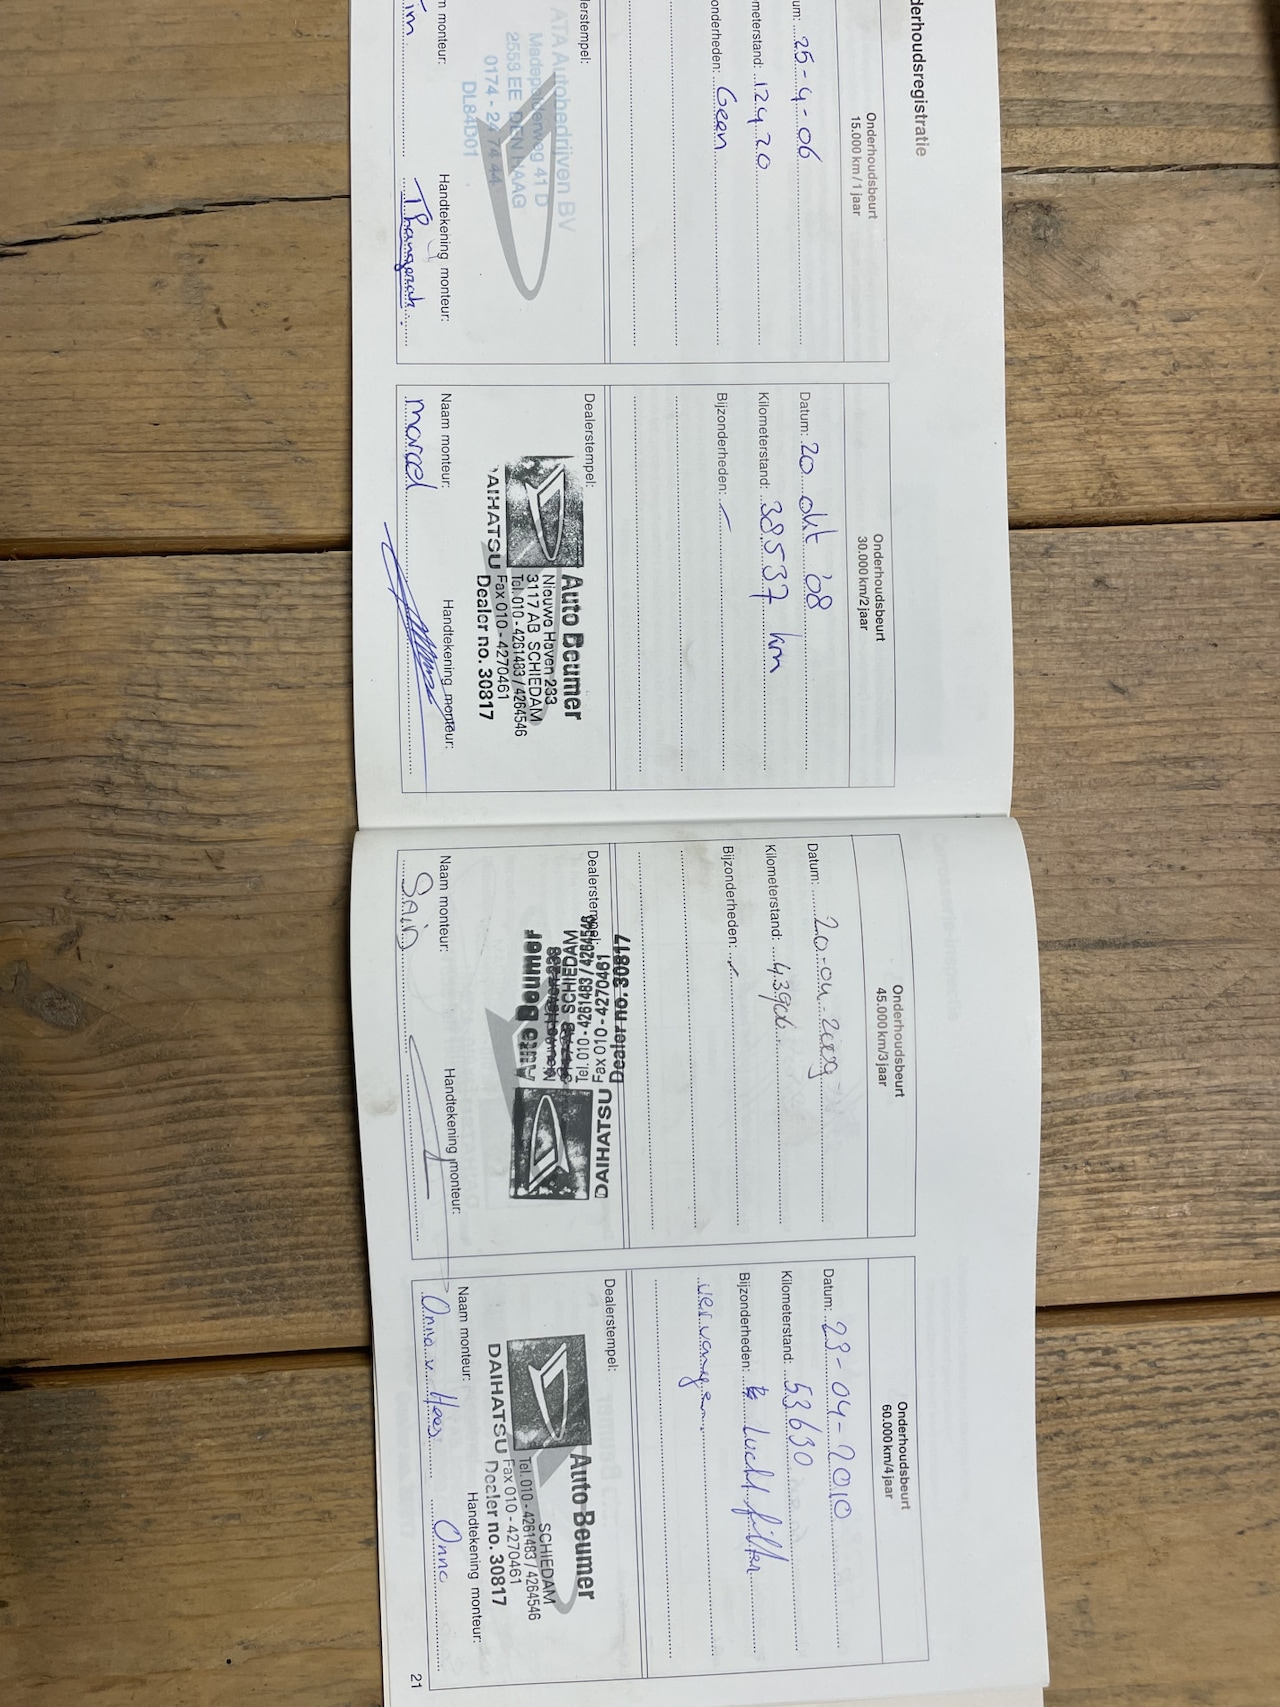 derhoudsregistratie
Onderhoudsbeurt
15.000 km/1 jaar
um: 25-4-06
meterstand: 12420
onderheden: Geen
lerstempel:
ATA Autobedrijven BV
Madepolderweg 41 D
2553 EE DEN HAAG
0174 - 24 74 44
DL84D01
m monteur:
Tim
Handtekening monteur:
Onderhoudsbeurt
30.000 km/2 jaar
Datum: 20 okt '08
Kilometerstand: 38537 km
Bijzonderheden:
Dealerstempel:
DAIHATSU
Auto Beumer
Nieuwe Haven 233
3117 AB SCHIEDAM
Tel. 010 - 4261483 / 4264546
Fax 010 - 4270461
Dealer no. 30817
Naam monteur:
marcel
Handtekening monteur:
Onderhoudsbeurt
45.000 km/3 jaar
Datum: 20-04-2009
Kilometerstand:
Bijzonderheden:
Dealerstempel:
Auto Beumer
Nieuwe Haven 233
3117 AB SCHIEDAM
Tel. 010 - 4261483 / 4264546
Fax 010 - 4270461
Dealer no. 30817
DAIHATSU
Naam monteur:
Handtekening monteur:
Onderhoudsbeurt
60.000 km/4 jaar
Datum: 23-04-2010
Kilometerstand: 53630
Bijzonderheden: Luchtfilter
vervangen
Dealerstempel:
Auto Beumer
SCHIEDAM
Tel. 010 - 4261483 / 4264546
Fax 010 - 4270461
DAIHATSU Dealer no. 30817
Naam monteur:
Onno v. Hees
Handtekening monteur:
Onno
21